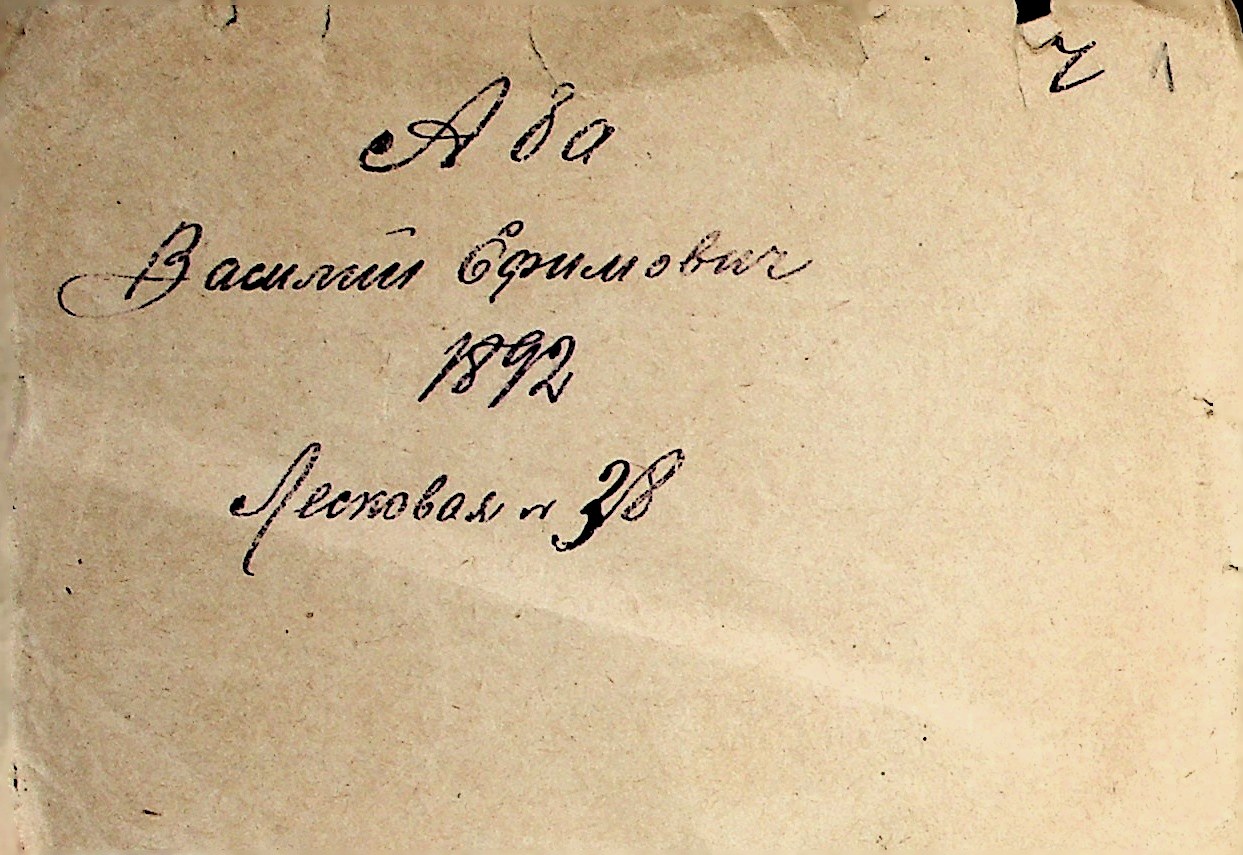 ч 1
Аба
Василий Ефимович
1892
Лесковая 38